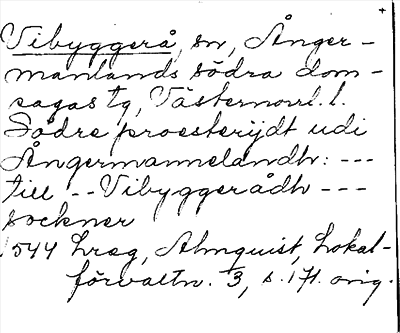 +
Vibyggerå, sn, Ånger-
manlands södra dom-
sagas tg, Västernorrl. l.
Södre proesterijdt udi
Ångermannelandh: ---
till -- Vibyggerådh ---
sockner
1544 hreg, Almquist, Lokal-
förvaltn. 3, s. 171. orig.